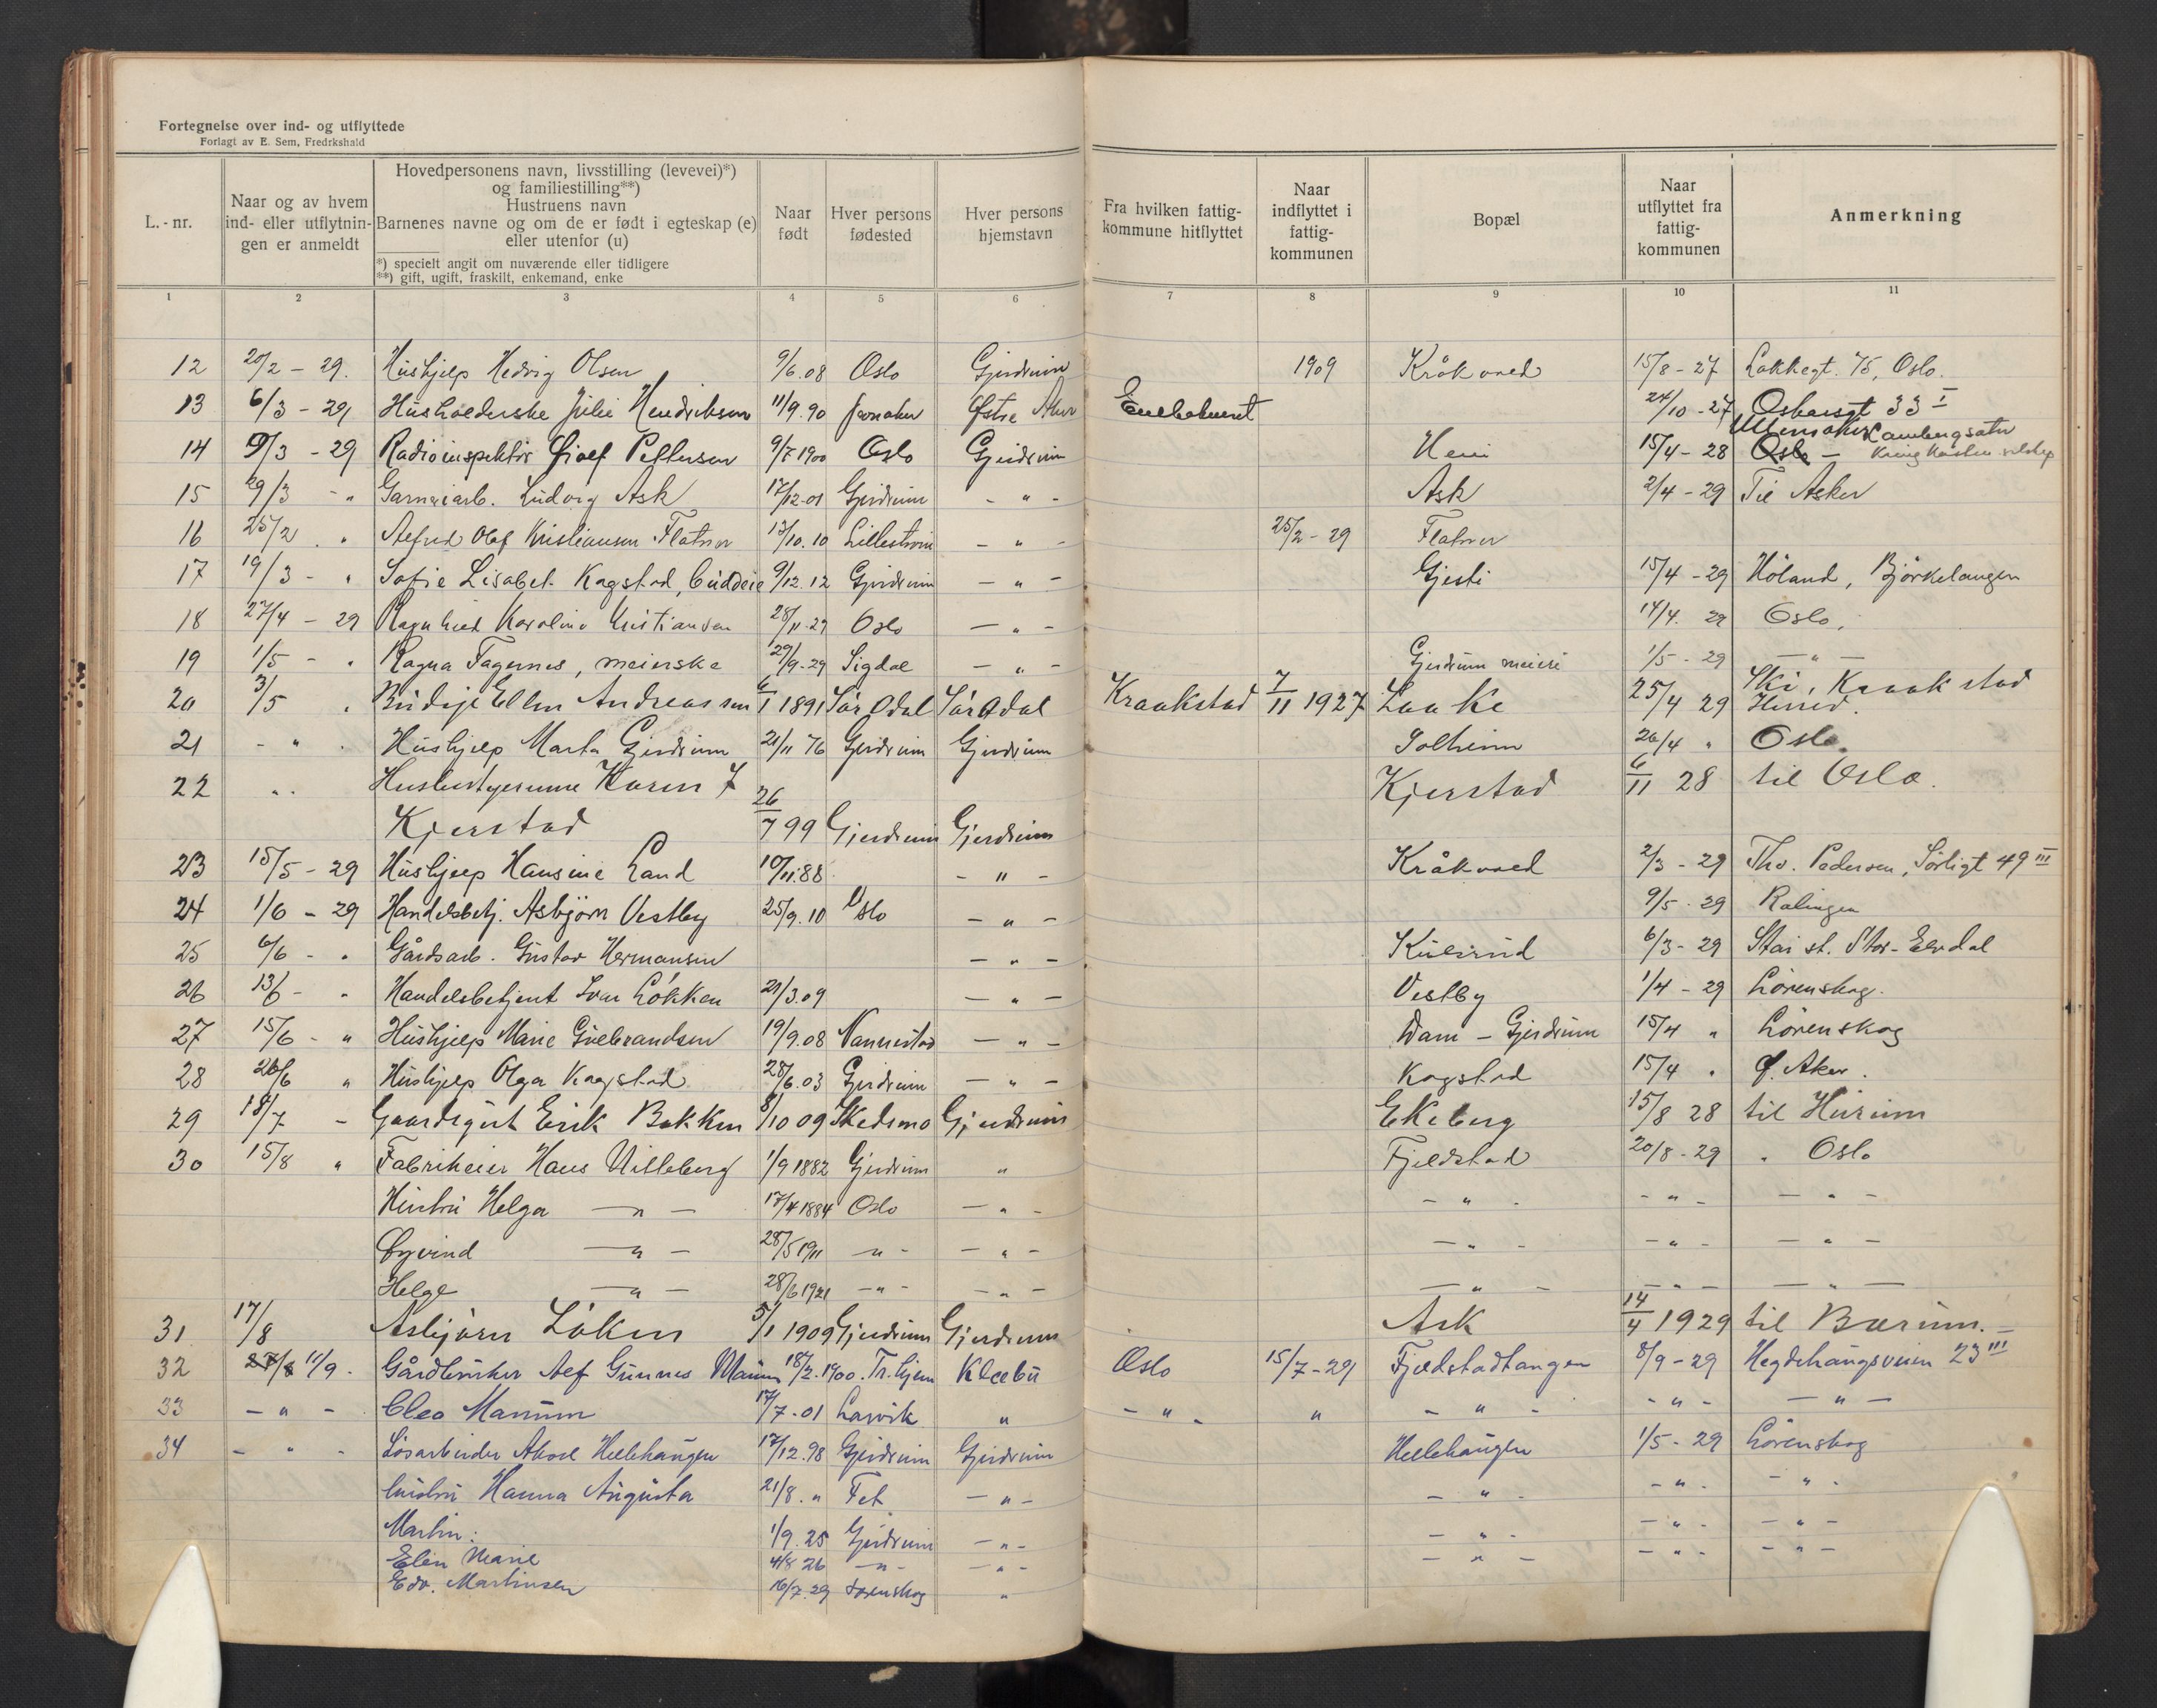 Fortegnelse over ind- og utflyttede
Forlagt av E. Sem, Fredrkshald
L.-nr.
Naar og av hvem ind- eller utflytnin- gen er anmeldt
Hovedpersonens navn, livsstilling (levevei)*)
og familiestilling**)
Hustruens navn
Barnenes navne og om de er født i egteskap (e)
eller utenfor (u)
*) specielt angit om nuværende eller tidligere
**) gift, ugift, fraskilt, enkemand, enke
Naar født
Hver persons fødested
Hver persons hjemstavn
Fra hvilken fattig- kommune hitflyttet
Naar indflyttet i fattig- kommunen
Bopæl
Naar utflyttet fra fattig- kommunen
Anmerkning
1 2 3 4 5 6 7 8 9 10 11
12 20/2 - 29. Hushjelp Hedvig Olsen 9/6.08 Oslo Gjerdrum 1909 Kråkvold 15/8 - 27 Lakkegt. 75, Oslo.
13 6/3 - 29 Husholderske Julie Hendriksen 11/9.90 Østre Aker 24/10 - 27 33 I
14 9/3 - 29 Radioinspektør Pettersen 9/7 1900 Oslo Gjerdrum 15/4 - 28 Ullensaker Oslo -
15 29/3 - " Ludvig Ask 17/12.01 Gjerdrum - " - Ask 2/4 - 29 Til Asker
16 25/2 . " Alfred Olaf Kristiansen Flatner 13/10.10 Lillestrøm - " - 25/2 - 29 Flatner
17 19/3 - " Sofie Lisabet Kogstad, Buddeie 9/12.12 Gjerdrum - " - Gjesti 15/4 - 29 Höland, Björkelangen
18 27/4 - 29 Ragnhild Karoline Kristiansen 28/11.29 Oslo - " - 14/4. 29 Oslo,
19 1/5 - " Ragna Fagernes, meierske 29/9-29 Sigdal - " - Gjerdrum meieri 1/5 - 29 - " -
20 3/5 " Budeje Ellen Andreassen 6/1 1891 Sör Odal Sör Odal Kraakstad 7/11 1927 Laake 25/4 29 Ski, Kraakstad Herred.
21 - " - Hushjelp Marta Gjerdrum 21/11 76 Gjerdrum Gjerdrum Solheim 26/4 " Oslo.
22 " Karen Kjerstad 26/7 99 Gjerdrum Gjerdrum Kjerstad 6/11 28 til Oslo.
23 15/5 - 29 Hushjelp Hansine Land 10/11.88 - " - Kråkvold 2/3 - 29 Tho. Pedersen, Sörligt 49 III
24 1/6 - 29 Handelsbetj. Asbjörn Vestby 25/9.10 Oslo - " - 9/5 - 29 Rælingen
25 6/6 - " Gårdsarb. Gustav Hermansen - " - Kulsrud 6/3 - 29 Stai st. Stor-Elvdal
26 13/6 - " Handelsbetjent Ivar Lökken 21/3.09 - " - Vestby 1/4 - 29 Lörenskog.
27 15/6 - " Hushjelp Marie Gulbrandsen 19/9.08 Nannestad - " - Dam - Gjerdrum 15/4 " Lörenskog
28 26/6 " Hushjelp Olga Kogstad 28/6.03 Gjerdrum - " - Kogstad 15/4 " Ø. Aker.
29 18/7 - Gaardsgut Erik Bakken 8/10 09 Skedsmo Gjerdrum Ekeberg 15/8 28 til Hurum
30 15/8 " Fabrikeier Hans Villeberg 1/9 1882 Gjerdrum " Fjeldstad 20/8 - 29 " Oslo
Hustru Helga - " - 17/4 1884 Oslo - " - - " - - " - - " -
Öyvind - " - 28/5 1911 - " - - " - - " - - " - - " -
Helge - " - 28/6 1921 - " - - " - - " - - " - - " -
31 17/8 Asbjörn Löken 5/1 1909 Gjerdrum Gjerdrum Ask 14/4 1929 til Bærum. -
32 27/8 11/9. Gårdbruker Alf Gunnes Manum 18/2.1900. Tr.hjem Klæbu Oslo 15/7 - 29 Fjeldstadtangen 8/9 - 29 Hegdehaugsveien 23 III
33 - " - Cleo Manum 17/7-01 Larvik " - " - " - " - - " - - " -
34 - " - Lösarbeider Aksel Hellehaugen 17/12.98 Gjerdrum Gjerdrum Hellehaugen 1/5 - 29 Lörenskog
hustru Hanna Augusta 21/8. " Fet - " - - " - - " - - " -
Martin: 1/9.25 Gjerdrum - " - - " - - " - - " -
Elin Marie 4/8 26 - " - - " - - " - - " - - " -
Edv. Martinsen 16/7.29 Lørenskog "